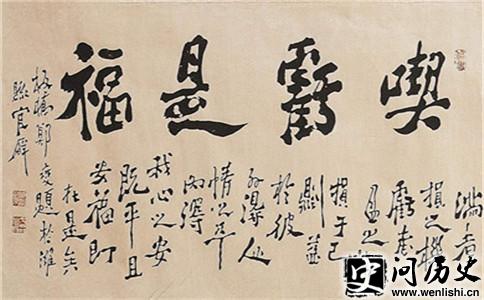 喫虧是福
滿者
損之機
虧者
盈之
損于己
則益
於彼
外得人
情之平
內得
我心之安
既平且
安福即
在是矣
板橋鄭燮題於濰
縣官廨
史问历史
www.wenlishi.cn